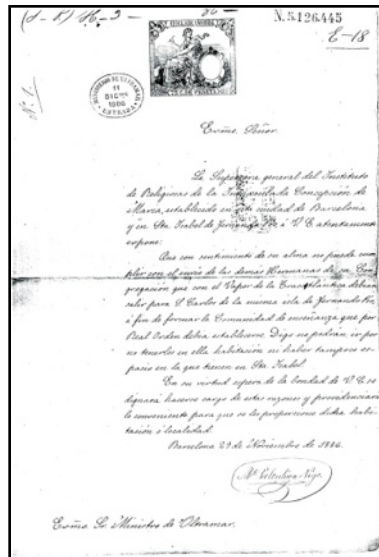 (J-P) H-3-
N.5.126.445
E-18
N. 1.
MINISTERIO DE ULTRAMAR
11
DIC
1886
ENTRADA
75 C. DE PESETA
Exĉmo. Señor.
La Superiora general del Instituto
de Religiosas de la Inmaculada Concepcion de
Maria, establecido en esta ciudad de Barcelona
y en Sta Isabel de Fernando Póo á V. E. atentamente
expone:
Que con sentimiento de su alma no puede cum-
plir con el envio de las demás Hermanas de su Con-
gregacion que con el Vapor de la Trasatlántica debian
salir para S. Carlos de la misma isla de Fernando Póo,
á fin de formar la Comunidad de enseñanza que por
Real Orden debia establecerse. Digo no podrán ir por
no tenerles en ella habitacion ni haber tampoco es-
pacio en la que tienen en Sta Isabel.
En su virtud espera de la bondad de V. E. se
dignará hacerse cargo de estas razones y providenciará
lo conveniente para que se les proporcione dicha habi-
tacion ó localidad.
Barcelona 29 de Noviembre de 1886.
Exĉmo. Sr. Ministro de Ultramar.